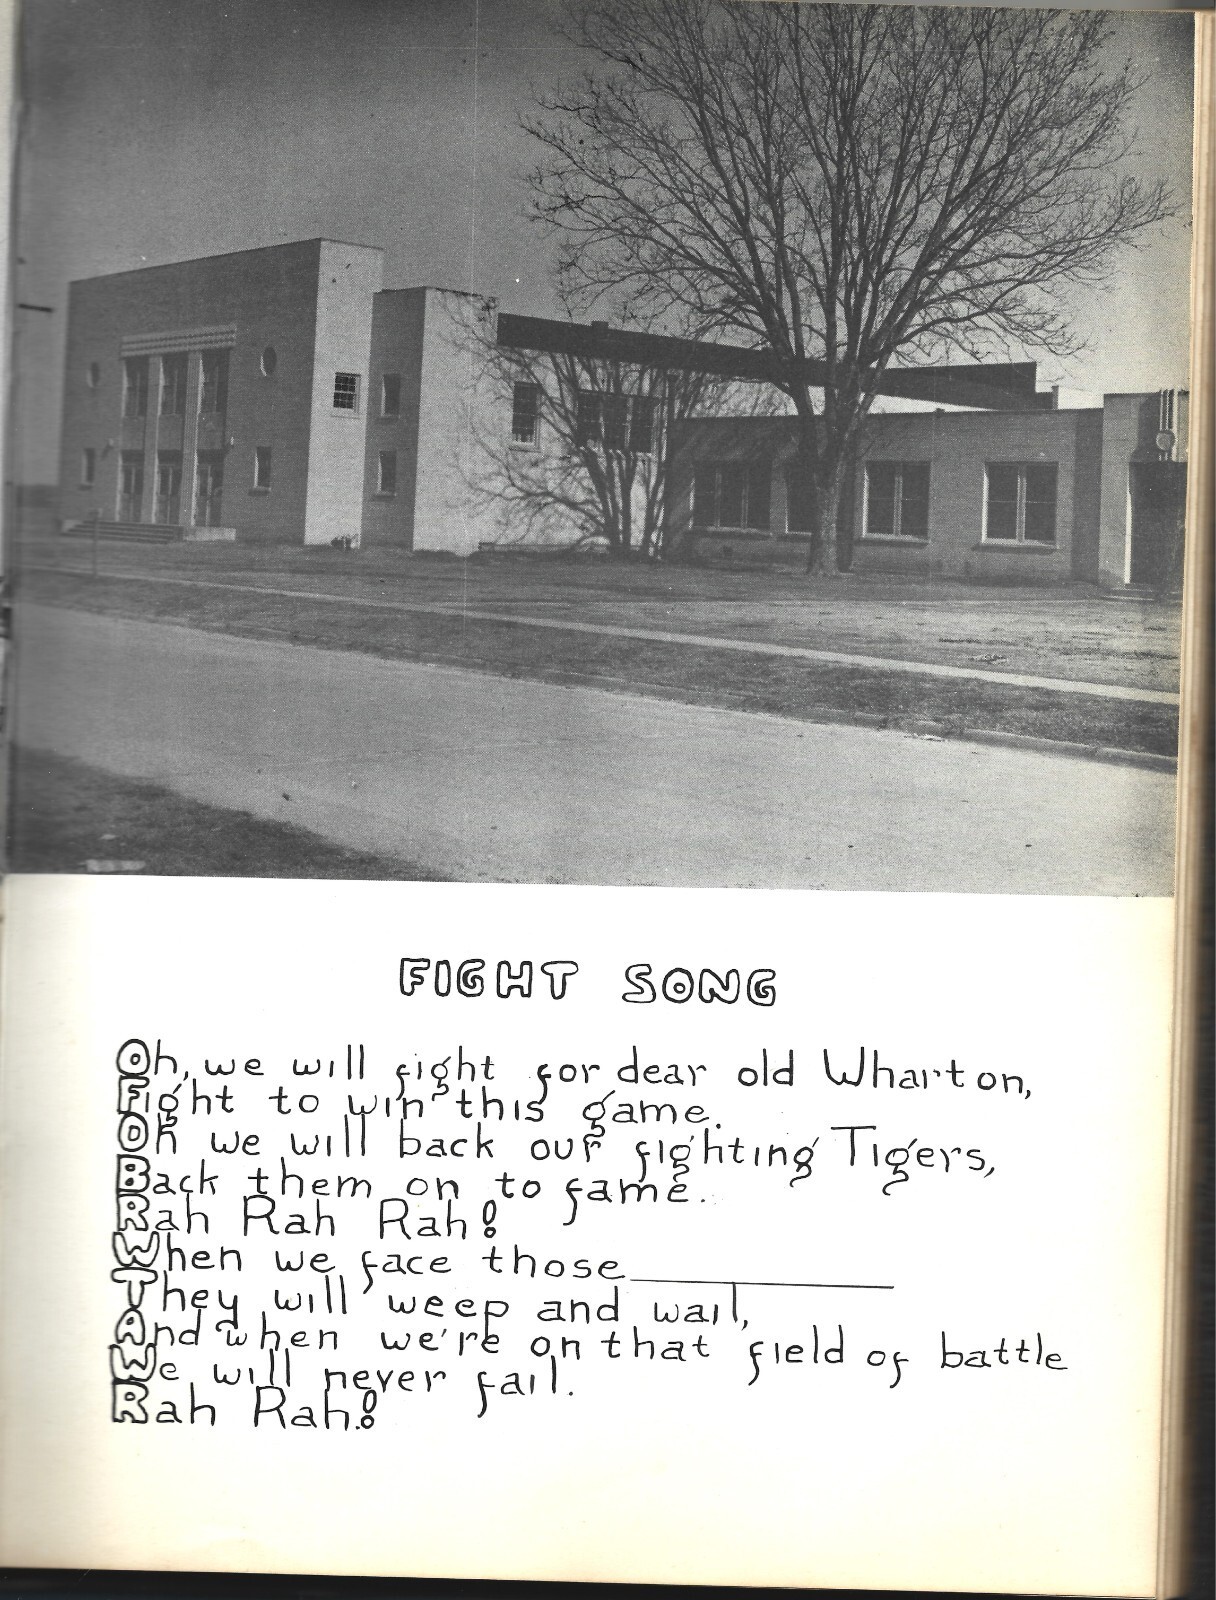 FIGHT SONG
Oh, we will fight for dear old Wharton,
Fight to win this game.
Oh we will back our fighting Tigers,
Back them on to fame.
Rah Rah Rah!
When we face those
They will weep and wail,
And when we're on that field of battle
We will never fail.
Rah Rah!